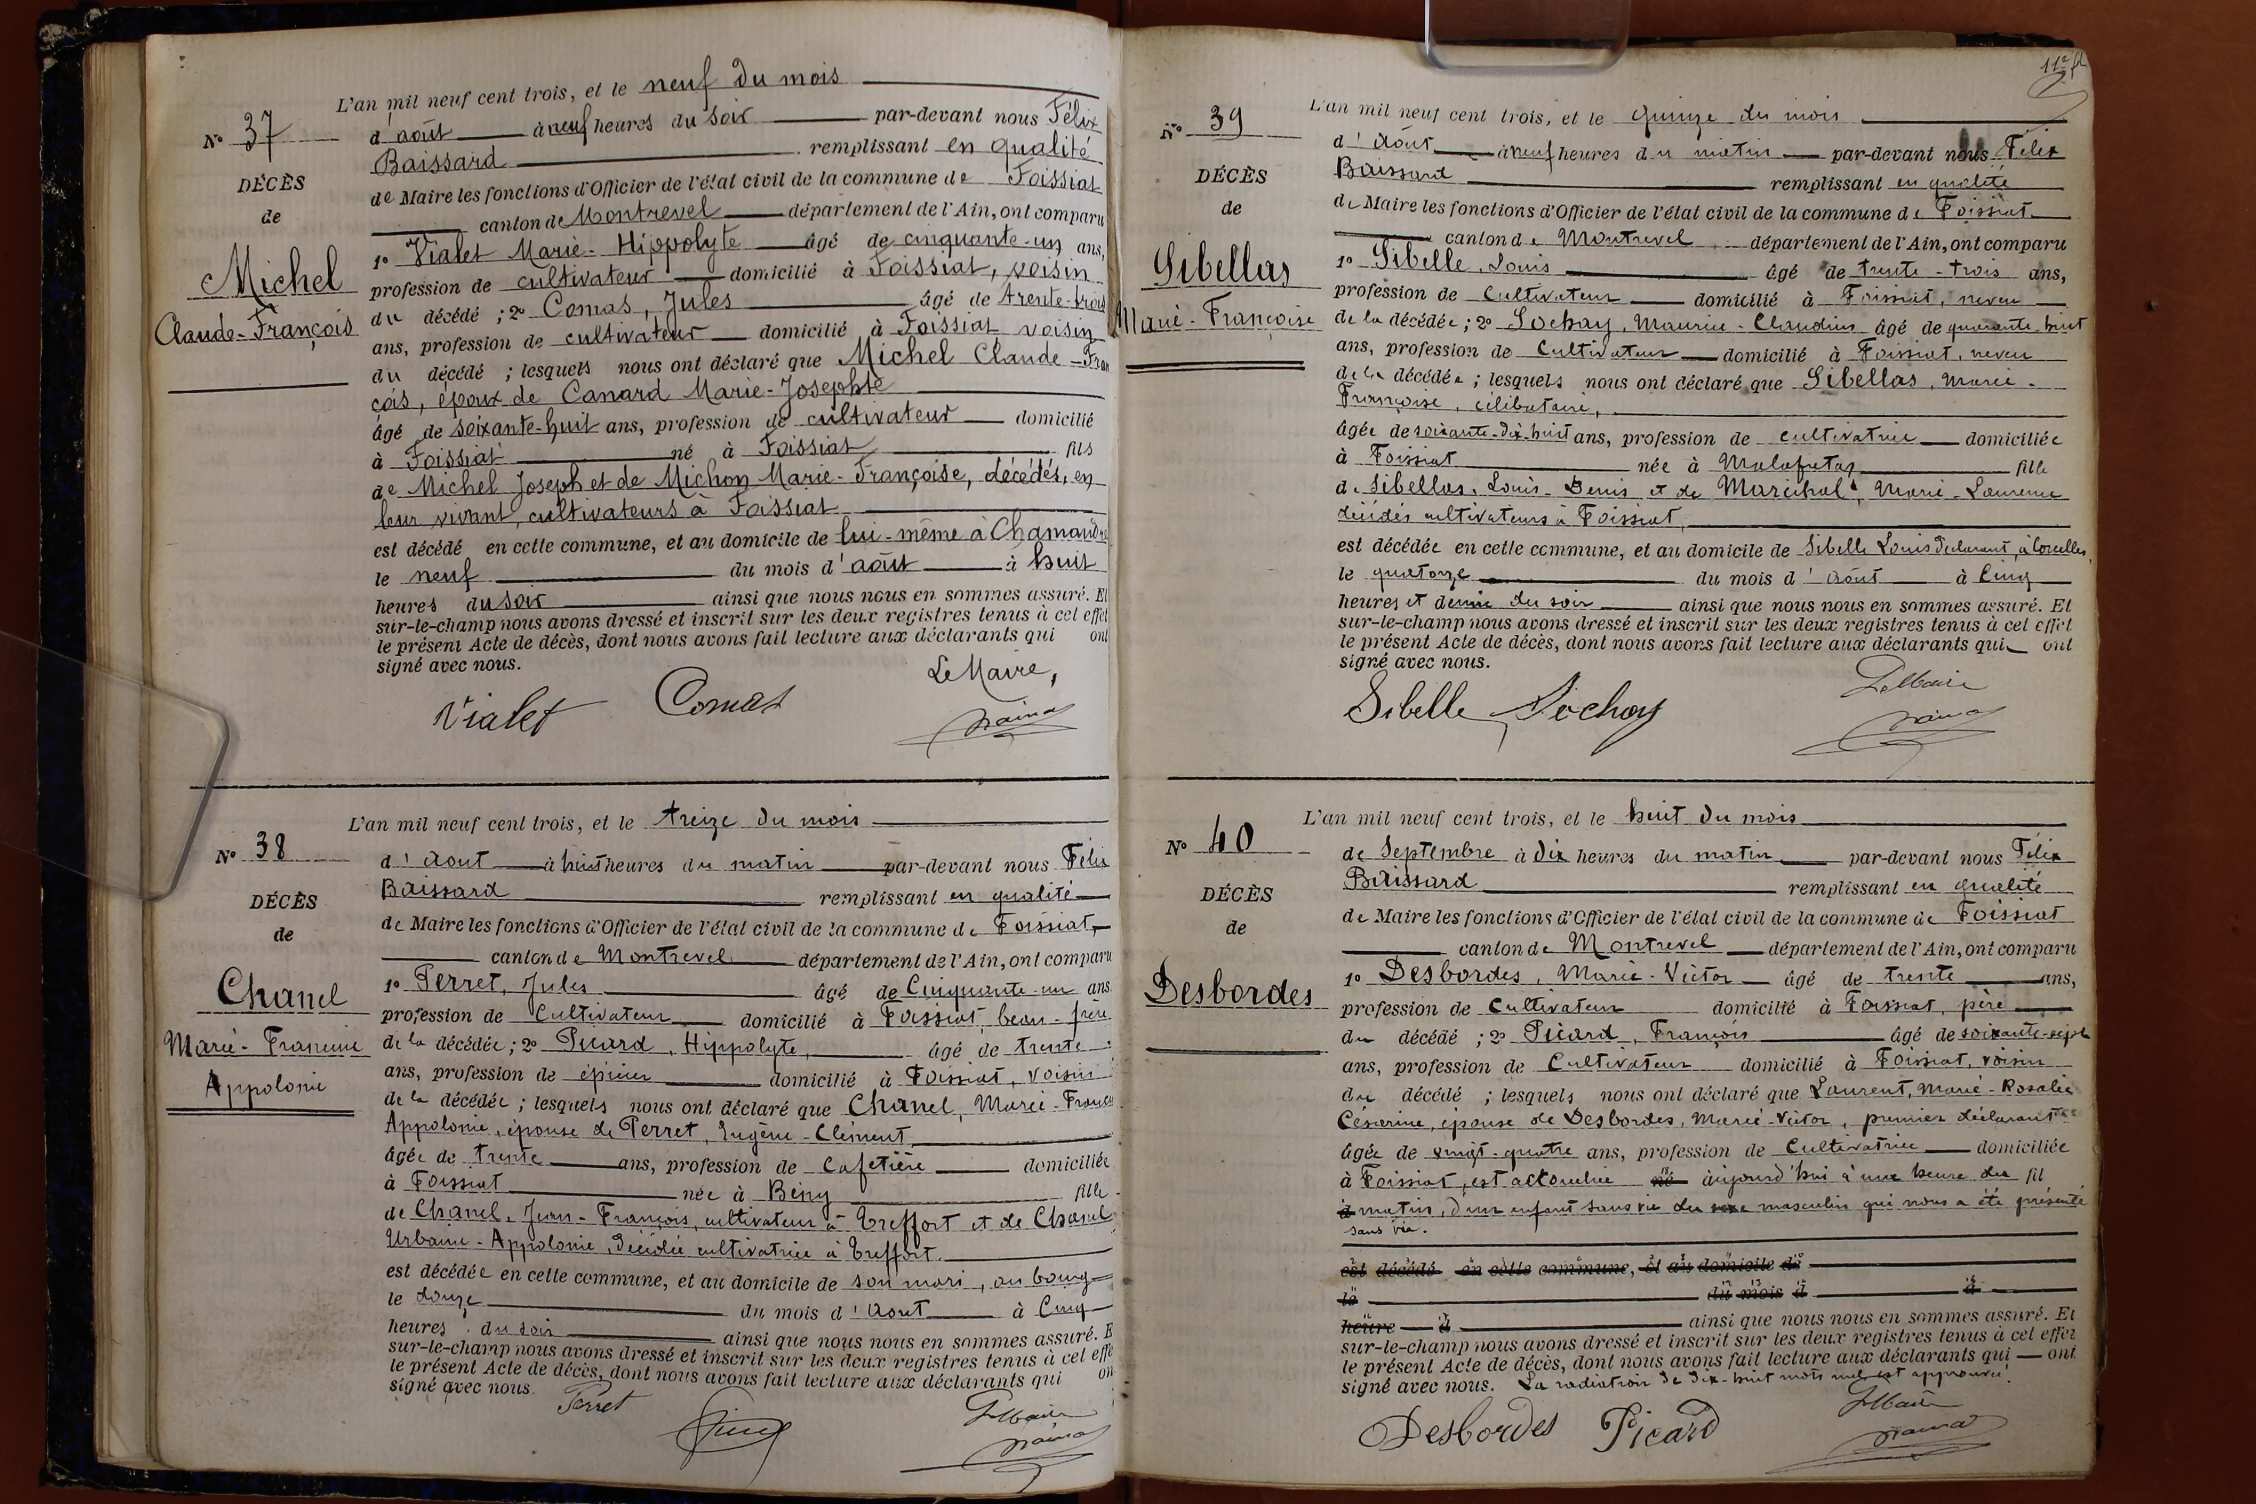 L'an mil neuf cent trois, et le neuf du mois
N° 37
d'août à neuf heures du soir par-devant nous Félix
Baissard remplissant en qualité
DÉCÈS
de Maire les fonctions d'Officier de l'état civil de la commune de Foissiat
de
canton de Montrevel département de l'Ain, ont comparu
1° Vialet Marie-Hippolyte âgé de cinquante-un ans,
Michel
profession de cultivateur domicilié à Foissiat, voisin
Claude-François
du décédé ; 2° Comas, Jules âgé de trente-trois
ans, profession de cultivateur domicilié à Foissiat voisin
du décédé ; lesquels nous ont déclaré que Michel Claude-Fran
çois, époux de Canard Marie-Josephte
âgé de soixante-huit ans, profession de cultivateur domicilié
à Foissiat né à Foissiat fils
de Michel Joseph et de Michon Marie-Françoise, décédés, en
leur vivant, cultivateurs à Foissiat
est décédé en cette commune, et au domicile de lui-même à Chamandre
le neuf du mois d'août à huit
heures du soir ainsi que nous nous en sommes assuré. Et
sur-le-champ nous avons dressé et inscrit sur les deux registres tenus à cet effet
le présent Acte de décès, dont nous avons fait lecture aux déclarants qui ont
signé avec nous.
Le Maire,
Vialet Comas
L'an mil neuf cent trois, et le treize du mois
N° 38
d'Aout à huit heures du matin par-devant nous Félix
Baissard remplissant en qualité
DÉCÈS
de Maire les fonctions d'Officier de l'état civil de la commune de Foissiat
de
canton de Montrevel département de l'Ain, ont comparu
1° Perret, Jules âgé de Cinquante-un ans
Chanel
profession de Cultivateur domicilié à Foissiat, beau-frère
Marie-Francine
de la décédée ; 2° Picard, Hippolyte, âgé de trente
Appolonie
ans, profession de épicier domicilié à Foissiat, voisin
de la décédée ; lesquels nous ont déclaré que Chanel, Marie-Francine
Appolonie, épouse de Perret, Eugène-Clément
âgée de trente ans, profession de Cafetière domiciliée
à Foissiat née à Bény fille
de Chanel, Jean-François, cultivateur à Treffort et de Chanel
Urbanie-Appolonie, décédée cultivatrice à Treffort.
est décédée en cette commune, et au domicile de son mari, au bourg
le douze du mois d'Aout à Cinq
heures du soir ainsi que nous nous en sommes assuré. E
sur-le-champ nous avons dressé et inscrit sur les deux registres tenus à cet effe
le présent Acte de décès, dont nous avons fait lecture aux déclarants qui on
signé avec nous.
Perret
Le Maire
11e ft
L'an mil neuf cent trois, et le quinze du mois
N° 39
d'Août à neuf heures du matin par-devant nous Félix
Baissard remplissant en qualité
DÉCÈS
de Maire les fonctions d'Officier de l'état civil de la commune de Foissiat
de
canton de Montrevel département de l'Ain, ont comparu
1° Sibelle, Louis âgé de trente-trois ans,
Sibellas
profession de Cultivateur domicilié à Foissiat, neveu
Marie-Françoise
de la décédée ; 2° Sochay, Maurice-Claudius âgé de quarante-huit
ans, profession de Cultivateur domicilié à Foissiat, neveu
de la décédée ; lesquels nous ont déclaré que Sibellas, Marie-
Françoise, célibataire,
âgée de soixante-dix-huit ans, profession de cultivatrice domiciliée
à Foissiat née à Malafretaz fille
de Sibellas, Louis-Denis et de Maréchal, Marie-Laurence
décédés cultivateurs à Foissiat,
est décédée en cette commune, et au domicile de Sibelle Louis déclarant, à Corcelles,
le quatorze du mois d'Août à Cinq
heures et demie du soir ainsi que nous nous en sommes assuré. Et
sur-le-champ nous avons dressé et inscrit sur les deux registres tenus à cet effet
le présent Acte de décès, dont nous avons fait lecture aux déclarants qui ont
signé avec nous.
Le Maire
Sibelle Sochay
L'an mil neuf cent trois, et le huit du mois
N° 40
de Septembre à dix heures du matin par-devant nous Félix
Baissard remplissant en qualité
DÉCÈS
de Maire les fonctions d'Officier de l'état civil de la commune de Foissiat
de
canton de Montrevel département de l'Ain, ont comparu
1° Desbordes, Marie-Victor âgé de trente ans,
Desbordes
profession de Cultivateur domicilié à Foissiat, père
du décédé ; 2° Picard, François âgé de soixante-sept
ans, profession de Cultivateur domicilié à Foissiat, voisin
du décédé ; lesquels nous ont déclaré que Laurent, Marie-Rosalie
Césarine, épouse de Desbordes, Marie-Victor, premier déclarant
âgée de vingt-quatre ans, profession de Cultivatrice domiciliée
à Foissiat, est accouchée né aujourd'hui à une heure du fil
d matin, d'un enfant sans vie du sexe masculin qui nous a été présenté
sans vie.
est décédé en cette commune, et au domicile de
le du mois d à
heure d ainsi que nous nous en sommes assuré. Et
sur-le-champ nous avons dressé et inscrit sur les deux registres tenus à cet effet
le présent Acte de décès, dont nous avons fait lecture aux déclarants qui ont
signé avec nous. La radiation de dix-huit mots nuls est approuvée.
Le Maire
Desbordes Picard